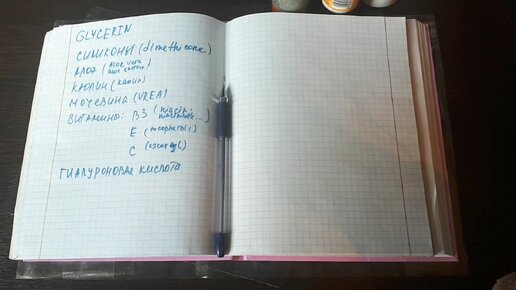 GLYCERIN
СИЛИКОНЫ (dimethicone)
АЛОЭ (aloe vera
КАОЛИН (каолин)
МОЧЕВИНА (UREA)
ВИТАМИНЫ: B3
E (tocopherol)
C
ГИАЛУРОНОВАЯ КИСЛОТА